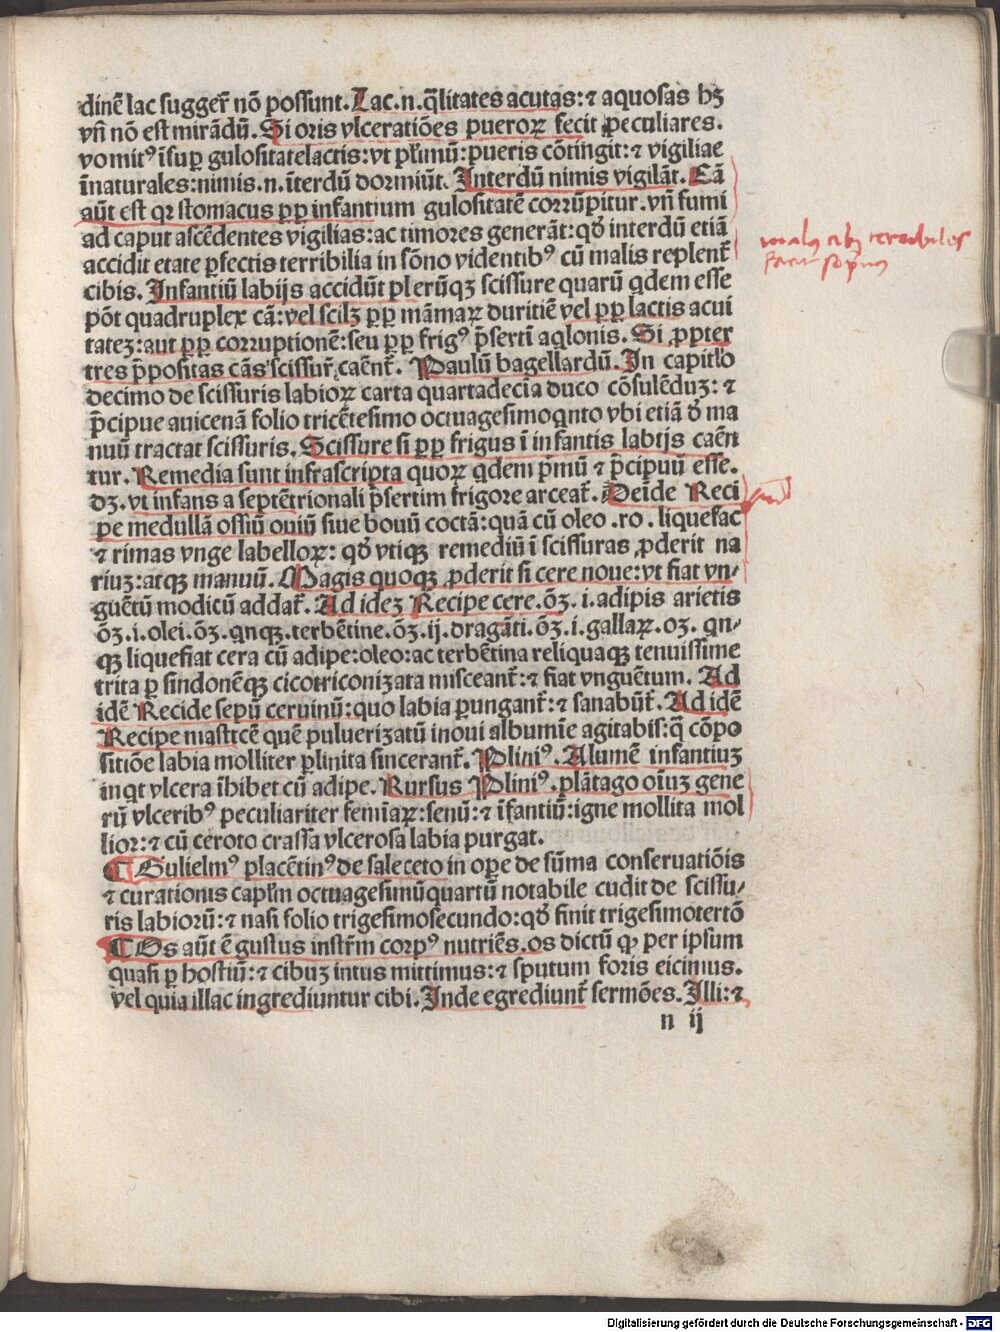 dinē lac suggerͬ nō possunt. Lac.n. q̄litates acutas: ⁊ aquosas hꝫ
vñ nō est mirādū. Si oris vlceratiōes pueroꝝ fecit ꝓpeculiares.
vomitꝰ īsuꝑ gulositate lactis: vt plʼimū: pueris cōtingit: ⁊ vigiliae
īnaturales: nimis .n. īterdū dormiūt. Interdū nimis vigilāt. Cā
aūt est qꝛ stomacus ꝓpꝑ infantium gulositatē corrūpitur. vñ fumi
ad caput ascēdentes vigilias: ac timores generāt: qđ interdū etiā
accidit etate ꝑfectis terribilia in sōno videntibꝰ cū malis replentͬ
cibis. Infantiū labijs accidūt plerūqꝫ scissure quarū qdem esse
pōt quadruplex cā: vel scilꝫ ꝓpꝑ māmaꝝ duritiē vel ꝓpꝑ lactis acui
tateꝫ: aut ꝓpꝑ corruptionē: seu ꝓpꝑ frigꝰ p̄sertī aqlonis. Si ꝓpter
tres p̄positas cās scissurͬ caēntͬ. Paulū bagellardū. In capitlʼo
decimo de scissuris labioꝝ carta quartadecīa duco cōsulēduꝫ: ⁊
p̄cipue auicenā folio tricētesimo octuagesimoqnto vbi etiā đ ma
nuū tractat scissuris. Scissure si ꝓpꝑ frigus ī infantis labijs caēn
tur. Remedia sunt infrascripta quoꝝ qdem p̄mū ⁊ p̄cipuū esse.
dꝫ. vt infans a septētrionali p̄sertim frigore arceatͬ. Deīde Reci
pe medullā ossiū ouiū siue bouū coctā: quā cū oleo .ro. liquefac
⁊ rimas vnge labelloꝝ: qđ vtiqꝫ remediū ī scissuras ꝓderit na
riuꝫ: atqꝫ manuū. Magis quoqꝫ ꝓderit si cere noue: vt fiat vn-
guētū modicū addatͬ. Ad ideꝫ Recipe cere .ōꝫ. i. adipis arietis
ōꝫ. i. olei .ōꝫ. qnqꝫ. terbētine .ōꝫ. ij. dragāti .ōꝫ. i. gallaꝝ .oꝫ. qn-
qꝫ liquefiat cera cū adipe: oleo: ac terbētina reliquaqꝫ tenuissime
trita ꝑ sindonēqꝫ cicotriconizata misceantͬ: ⁊ fiat vnguētum. Ad
idē Recide sepū ceruinū: quo labia ꝑungantͬ: ⁊ sanabūtͬ. Ad idē
Recipe masticē quē puluerizatū inoui albumīe agitabis: q̄ cōpo
sitiōe labia molliter ꝑlinita sincerantͬ. Pliniꝰ. Alumē infantiuꝫ
inqt vlcera īhibet cū adipe. Rursus Pliniꝰ. plātago oīuꝫ gene
rū vlceribꝰ peculiariter femīaꝝ: senū: ⁊ īfantiū: igne mollita mol
lior: ⁊ cū ceroto crassa vlcerosa labia purgat.
¶ Gulielmꝰ placētinꝰ de saleceto in oꝑe de sūma conseruatiōis
⁊ curationis caplʼm octuagesimūquartū notabile cudit de scissu-
ris labiorū: ⁊ nasi folio trigesimosecundo: qđ finit trigesimotertō
¶ Os aūt ē gustus instrʼm corpꝰ nutriēs. os dictū ꝙ per ipsum
quasi ꝑ hostiū: ⁊ cibuꝫ intus mittimus: ⁊ sputum foris eicimus.
vel quia illac ingrediuntur cibi. Inde egrediuntͬ sermōes. Illi: ⁊
n ij
Digitalisierung gefördert durch die Deutsche Forschungsgemeinschaft - DFG